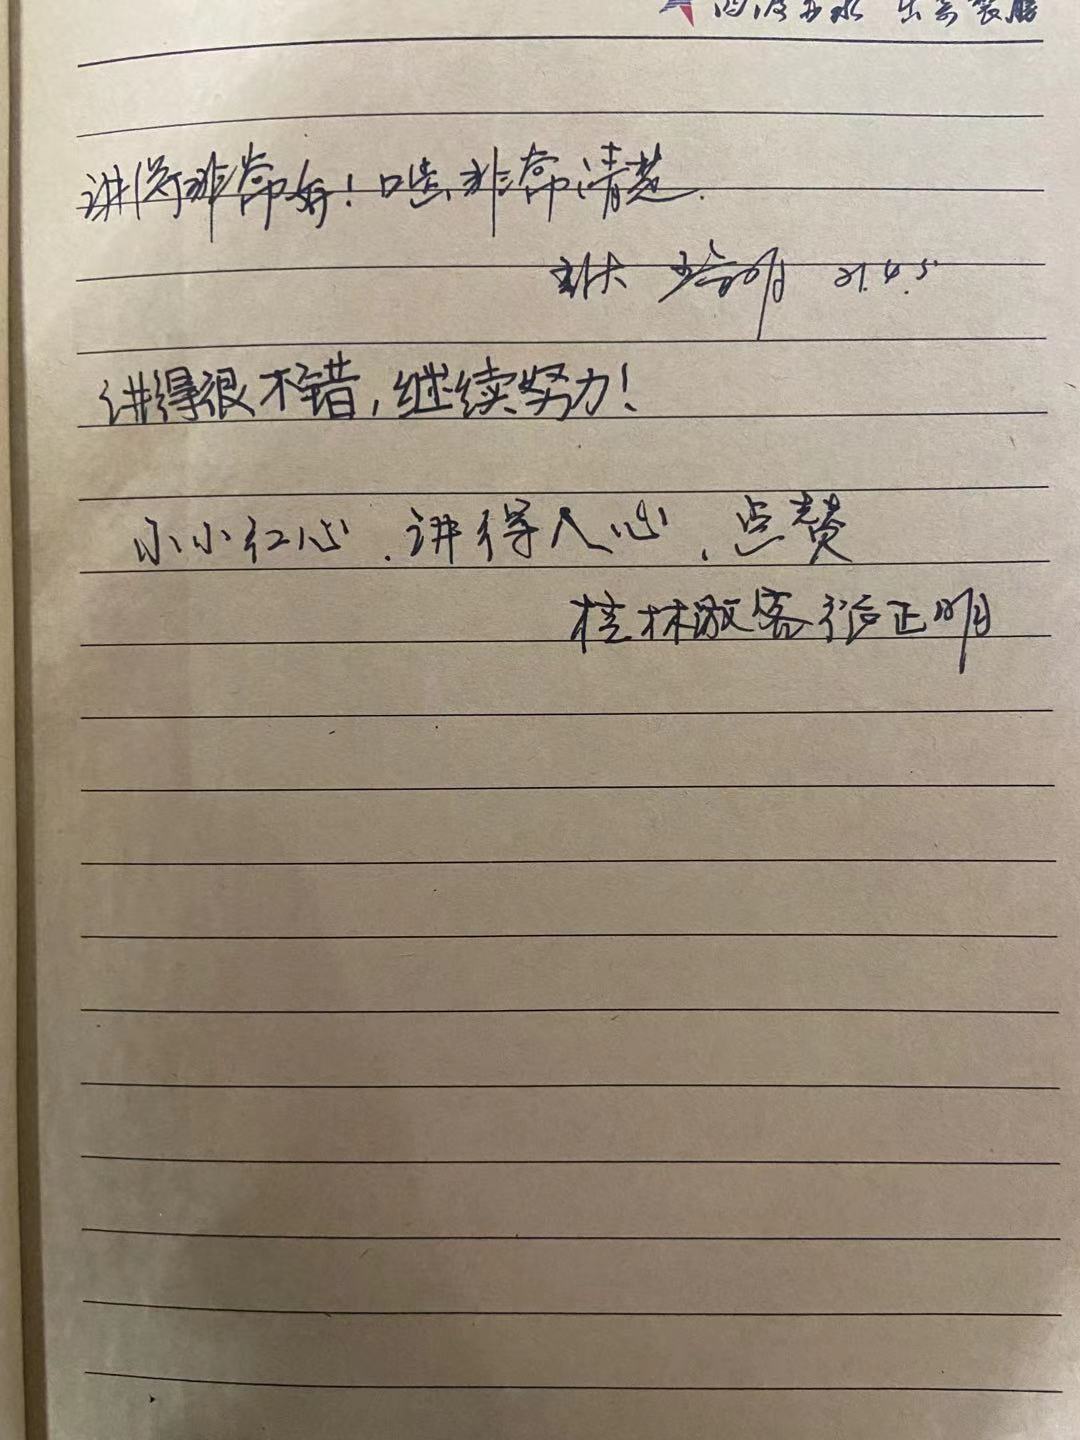 讲得非常好！口齿非常清楚.
21.4.5
讲得很不错，继续努力！
小小红心、讲得人心、点赞
桂林 客 正明